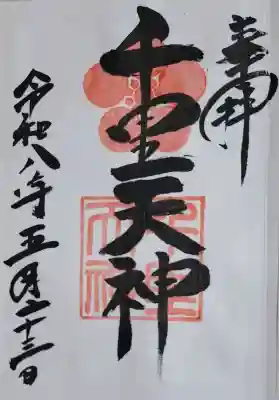 奉拝
千里天神
令和八年五月二十三日